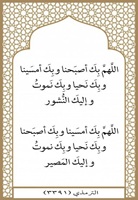 اللهمَّ بِك أصبَحنا و بِك أمسَينا
و بِك نَحيا و بِك نَموتُ
و إليك النُّشور
اللهمَّ بِك أمسَينا و بِك أصبَحنا
و بِك نَحيا و بِك نَموتُ
و إليك المَصير
الترمذي (٣٣٩١)